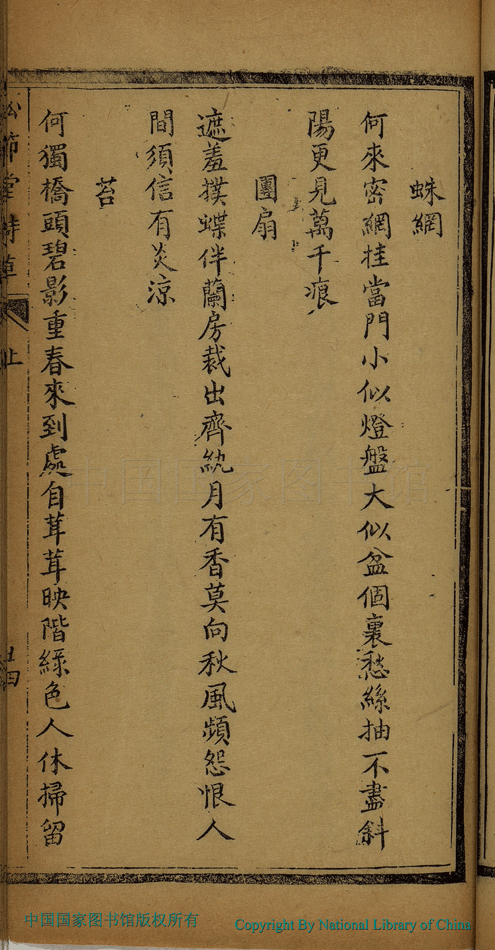 蛛網
何來密網挂當門小似燈盤大似盆個裏愁絲抽不盡斜
陽更見萬千痕
團扇
遮羞撲蝶伴蘭房裁出齊紈月有香莫向秋風頻怨恨人
間須信有炎涼
苔
何獨橋頭碧影重春來到處自茸茸映階綠色人休掃留
中国国家图书馆
中国国家图书馆版权所有
Copyright By National Library of China